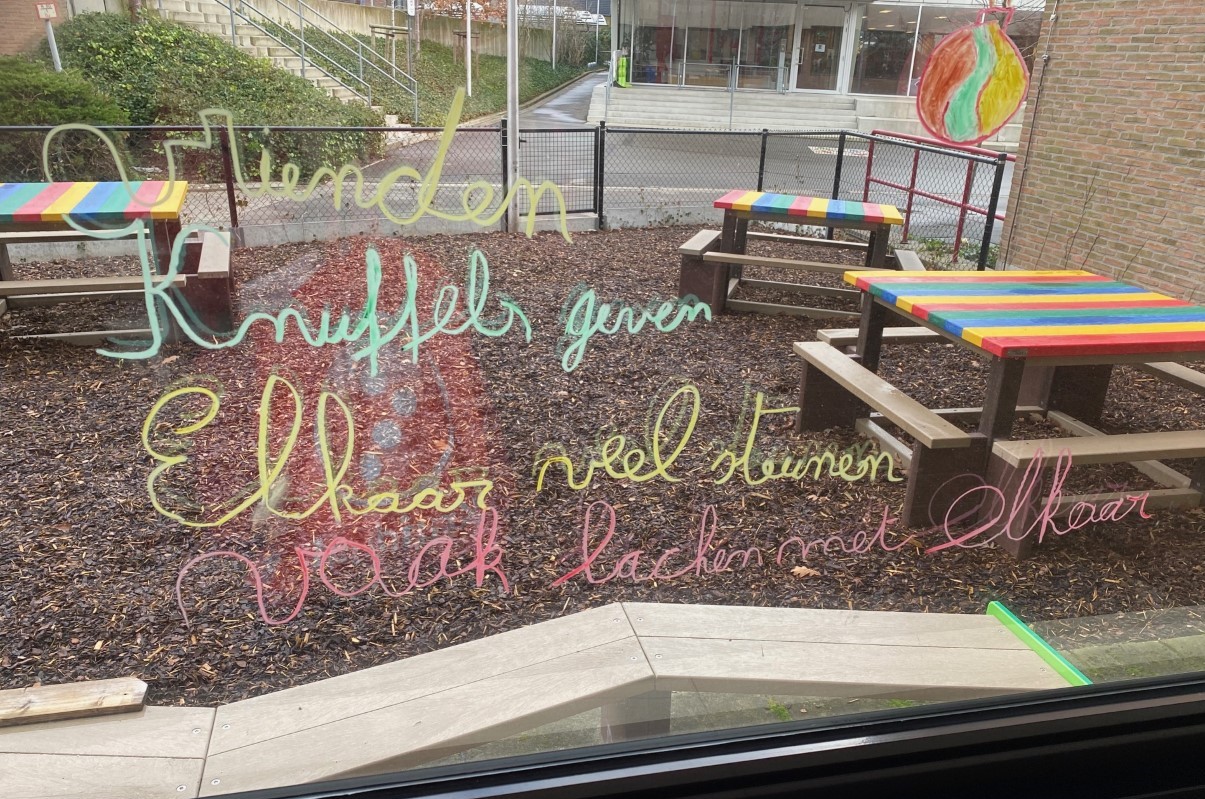 Vrienden
Knuffels geven
Elkaar veel steunen
Vaak lachen met elkaar